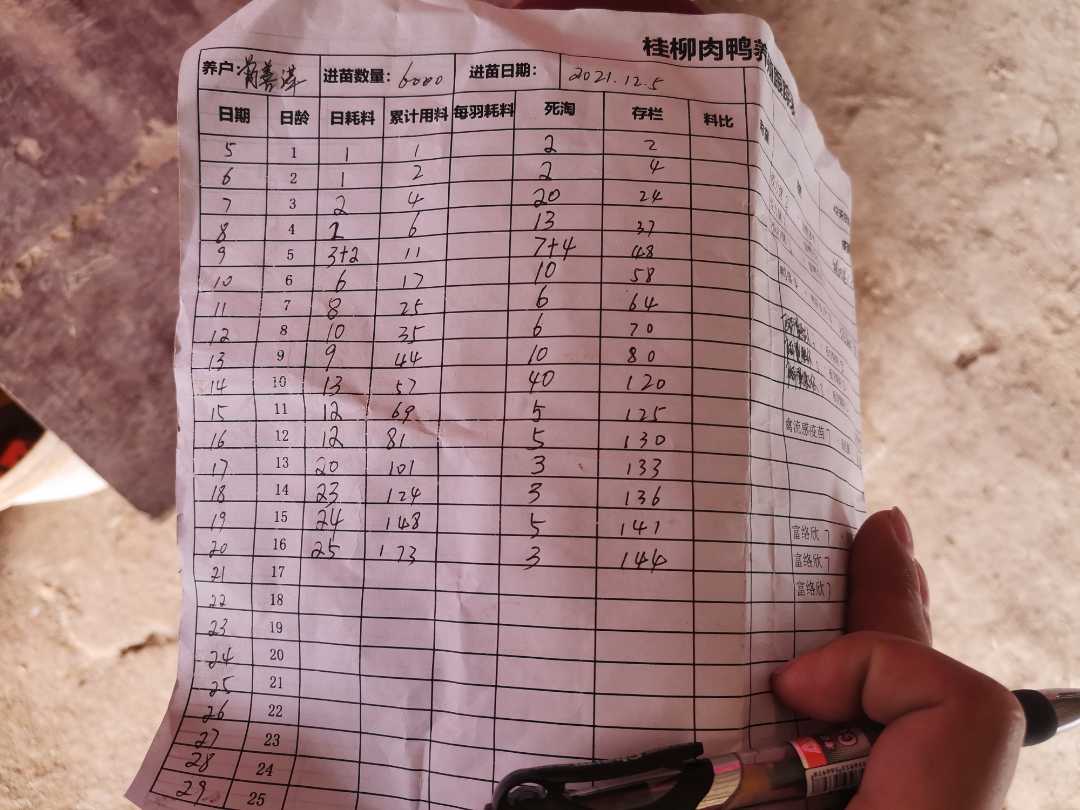 桂柳肉鸭养
养户 进苗数量: 6000 进苗日期: 2021.12.5
日期 日龄 日耗料 累计用料 每羽耗料 死淘 存栏 料比
5 1 1 1 2 2
6 2 1 2 2 4
7 3 2 4 20 24
8 4 2 6 13 37
9 5 3+2 11 7+4 48
10 6 6 17 10 58
11 7 8 25 6 64
12 8 10 35 6 70
13 9 9 44 10 80
14 10 13 57 40 120
15 11 12 69 5 125 禽流感疫苗
16 12 12 81 5 130
17 13 20 101 3 133
18 14 23 124 3 136
19 15 24 148 5 141 富络欣
20 16 25 173 3 144 富络欣
21 17 富络欣
22 18
23 19
24 20
25 21
26 22
27 23
28 24
29 25